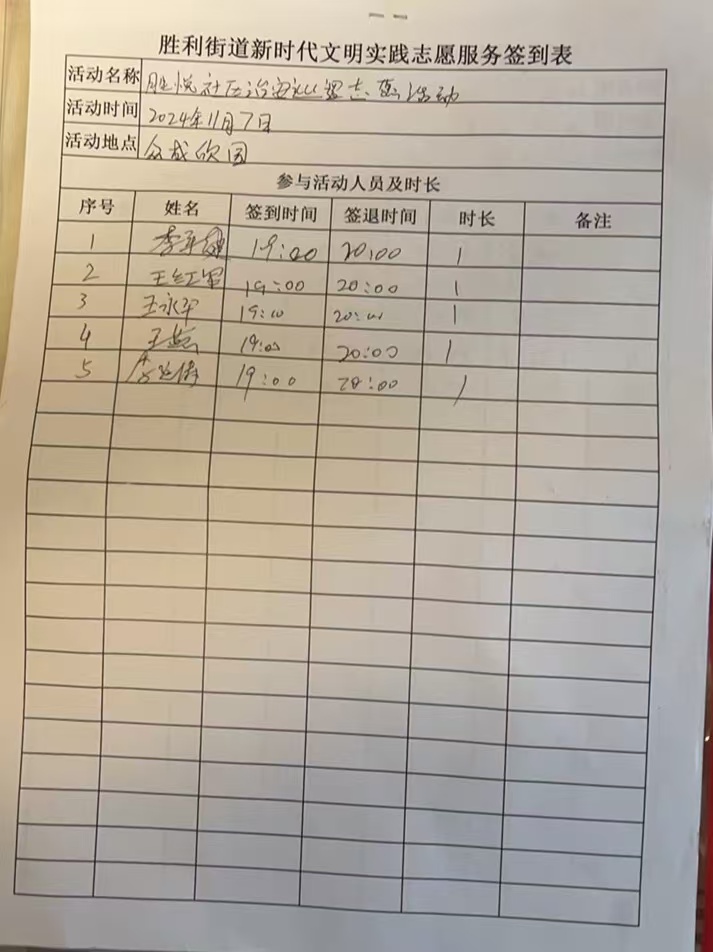 胜利街道新时代文明实践志愿服务签到表
活动名称 胜悦社区治安巡逻志愿活动
活动时间 2024年11月7日
活动地点 众成欣园
参与活动人员及时长
序号 姓名 签到时间 签退时间 时长 备注
1 19:00 20:00 1
2 王红军 19:00 20:00 1
3 王永军 19:00 20:00 1
4 19:00 20:00 1
5 19:00 20:00 1